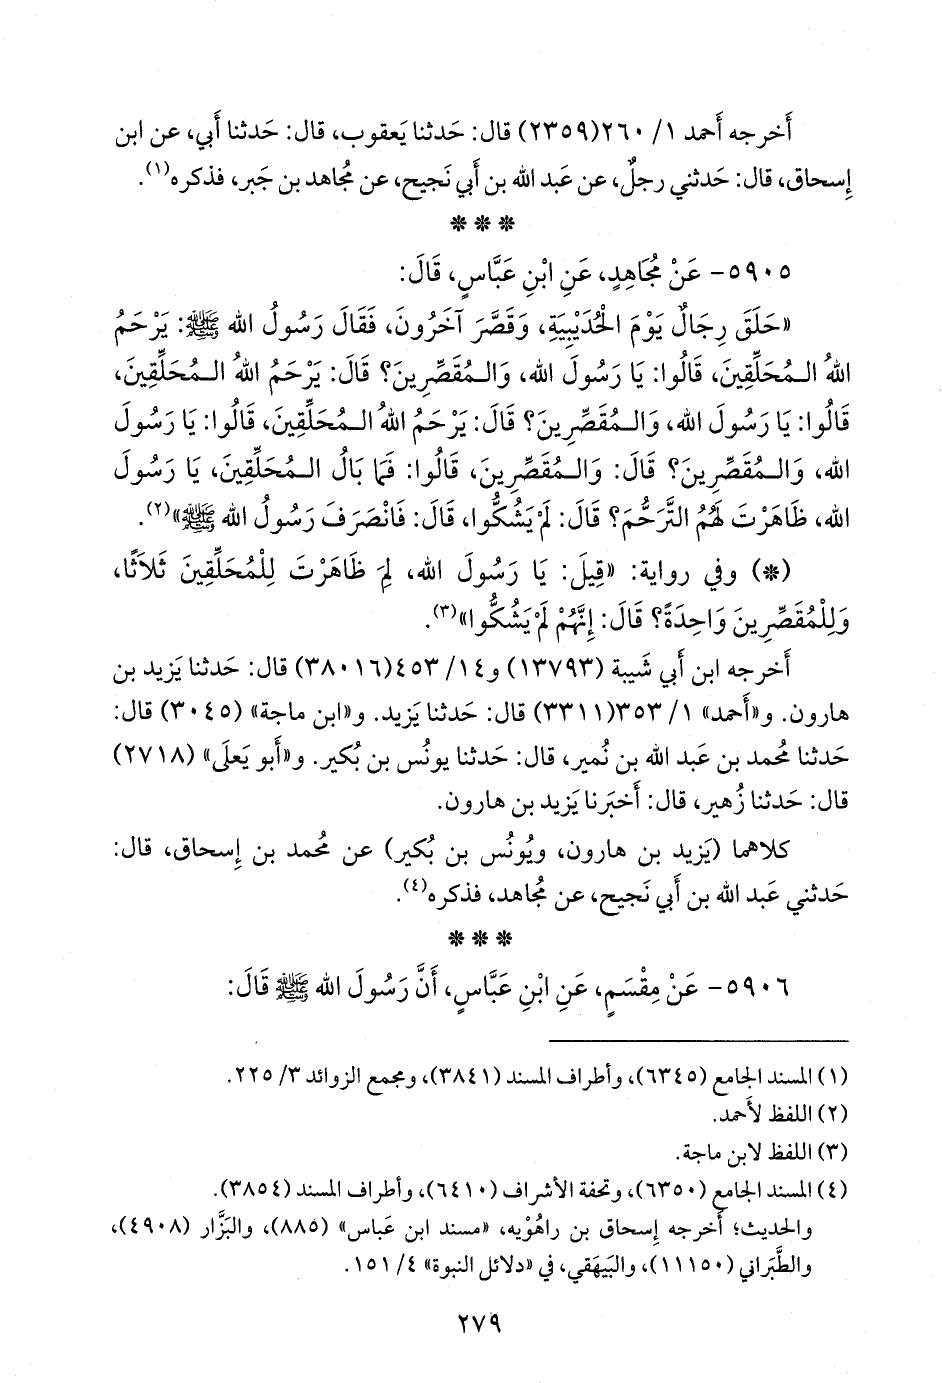 أَخرجه أَحمد ١/ ٢٦٠(٢٣٥٩) قال: حَدثنا يَعقوب، قال: حَدثنا أَبي، عن ابن
إِسحاق، قال: حَدثني رجلٌ، عن عَبد الله بن أَبي نَجيح، عن مُجاهد بن جَبر، فذكره(١).
* * *
٥٩٠٥- عَنْ مُجَاهِدٍ، عَنِ ابْنِ عَبَّاسٍ، قَالَ:
«حَلَقَ رِجَالٌ يَوْمَ الْحُدَيْبِيَةِ، وَقَصَّرَ آخَرُونَ، فَقَالَ رَسُولُ الله ﷺ: يَرْحَمُ
اللهُ الـمُحَلِّقِينَ، قَالُوا: يَا رَسُولَ الله، وَالـمُقَصِّرِينَ؟ قَالَ: يَرْحَمُ اللهُ الـمُحَلِّقِينَ،
قَالُوا: يَا رَسُولَ الله، وَالـمُقَصِّرِينَ؟ قَالَ: يَرْحَمُ اللهُ الـمُحَلِّقِينَ، قَالُوا: يَا رَسُولَ
الله، وَالـمُقَصِّرِينَ؟ قَالَ: وَالـمُقَصِّرِينَ، قَالُوا: فَمَا بَالُ الـمُحَلِّقِينَ، يَا رَسُولَ
الله، ظَاهَرْتَ لَهُمُ التَّرَحُّمَ؟ قَالَ: لَمْ يَشُكُّوا، قَالَ: فَانْصَرَفَ رَسُولُ الله ﷺ»(٢).
(*) وفي رواية: «قِيلَ: يَا رَسُولَ الله، لِمَ ظَاهَرْتَ لِلْمُحَلِّقِينَ ثَلَاثًا،
وَلِلْمُقَصِّرِينَ وَاحِدَةً؟ قَالَ: إِنَّهُمْ لَمْ يَشُكُّوا»(٣).
أَخرجه ابن أَبي شَيبة (١٣٧٩٣) و١٤/ ٤٥٣(٣٨٠١٦) قال: حَدثنا يَزيد بن
هارون. و«أَحمد» ١/ ٣٥٣(٣٣١١) قال: حَدثنا يَزيد. و«ابن ماجة» (٣٠٤٥) قال:
حَدثنا مُحمد بن عَبد الله بن نُمير، قال: حَدثنا يونُس بن بُكير. و«أَبو يَعلَى» (٢٧١٨)
قال: حَدثنا زُهير، قال: أَخبَرنا يَزيد بن هارون.
كلاهما (يَزيد بن هارون، ويُونُس بن بُكير) عن مُحمد بن إِسحاق، قال:
حَدثني عَبد الله بن أَبي نَجيح، عن مُجاهد، فذكره(٤).
* * *
٥٩٠٦- عَنْ مِقْسَمٍ، عَنِ ابْنِ عَبَّاسٍ، أَنَّ رَسُولَ الله ﷺ قَالَ:
(١) المسند الجامع (٦٣٤٥)، وأطراف المسند (٣٨٤١)، ومجمع الزوائد ٣/ ٢٢٥.
(٢) اللفظ لأَحمد.
(٣) اللفظ لابن ماجة.
(٤) المسند الجامع (٦٣٥٠)، وتحفة الأشراف (٦٤١٠)، وأطراف المسند (٣٨٥٤).
والحديث؛ أَخرجه إِسحاق بن راهُوْيه، «مسند ابن عَباس» (٨٨٥)، والبَزَّار (٤٩٠٨)،
والطَّبَراني (١١١٥٠)، والبَيهَقي، في «دلائل النبوة» ٤/ ١٥١.
٢٧٩